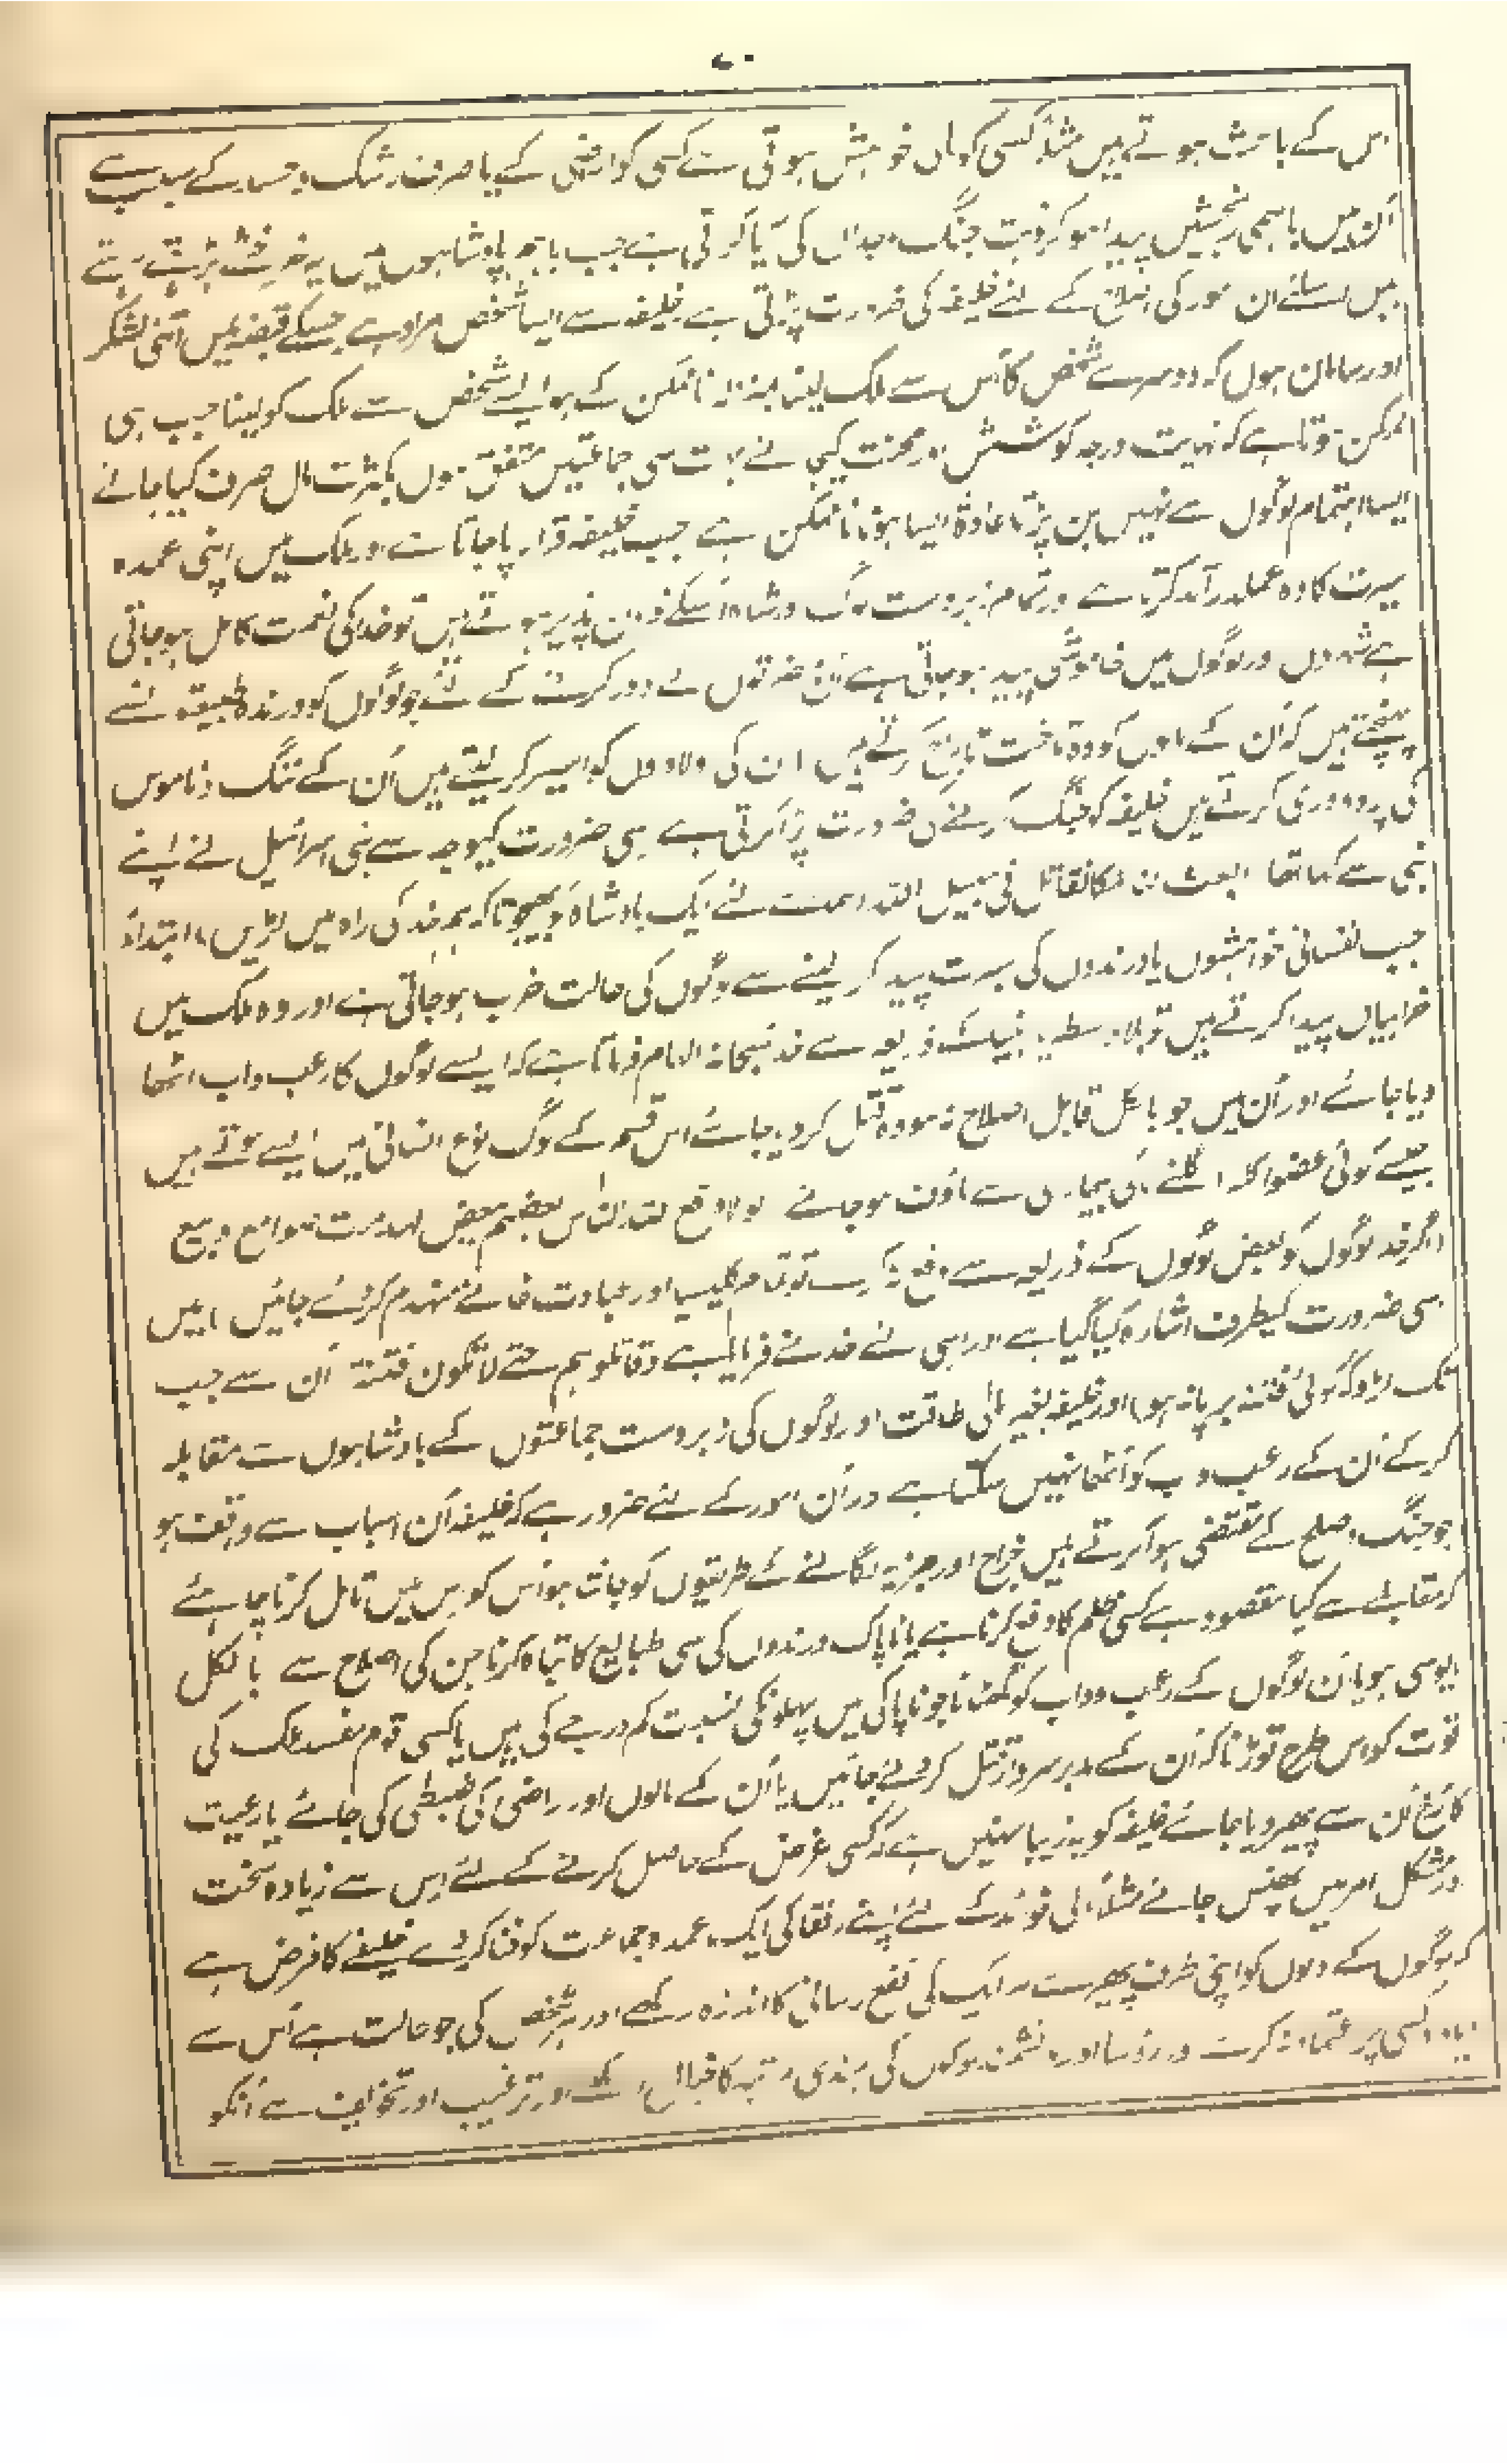 ۷۰
اس کے باعث ہوتے ہیں مثلاً کسی کو مال کی خواہش ہوتی ہے کسی کو اراضی کے یا صرف رشک و حسد کے سبب سے
اُن میں باہمی رنجشیں پیدا ہو کر نوبت جنگ و جدال کی آیا کرتی ہے جب باہم بادشاہوں میں یہ خرخشے بڑھتے رہتے
ہیں اسلئے ان امور کی اصلاح کے لئے خلیفہ کی ضرورت پڑتی ہے خلیفہ سے ایسا شخص مراد ہے جسکے قبضہ میں اتنی لشکر
اور سامان ہوں کہ دوسرے شخص کا اُس سے ملک لینا بمنزلہ ناممکن کے ہو ایسے شخص سے ملک کو لینا جب ہی
ممکن ہوتا ہے کہ نہایت درجہ کوشش اور محنت کیجائے بہت سی جماعتیں متفق ہوں بکثرت مال صرف کیا جائے
ایسا اہتمام لوگوں سے نہیں بن پڑتا عادۃً ایسا ہونا ناممکن ہے جب خلیفہ قرار پا جاتا ہے اور ملک میں اپنی عمدہ
سیرت کا وہ عملدرآمد کرتا ہے اور تمام زبردست لوگ و شاہ اُسکے فرمان پذیر ہوتے ہیں تو خدا کی نعمت کامل ہو جاتی
ہے شہروں اور لوگوں میں خاموشی پیدا ہو جاتی ہے اُن مضرتوں کے دور کرنے کے لئے جو لوگوں کو درندہ طبیعتوں سے
پہنچتے ہیں کہ اُن کے مالوں کو وہ تاخت تاراج کرتے ہیں ان کی اولادوں کو اسیر کر لیتے ہیں اُن کے ننگ و ناموس
کی پردہ دری کرتے ہیں خلیفہ کو جنگ کرنے کی ضرورت پڑا کرتی ہے اسی ضرورت کیوجہ سے بنی اسرائیل نے اپنے
نبی سے کہا تھا ابعث لنا ملکا نقاتل فی سبیل اللہ ہمارے لئے ایک بادشاہ کو بھیجو تاکہ ہم خدا کی راہ میں لڑیں، ابتداءً
جب نفسانی خواہشوں یا درندوں کی سیرت پیدا کر لینے سے لوگوں کی حالت خراب ہو جاتی ہے اور وہ ملک میں
خرابیاں پیدا کرتے ہیں تو بلاواسطہ یا انبیا کے ذریعہ سے خدا سبحانہ الہام فرماتا ہے کہ ایسے لوگوں کا رعب داب اٹھا
دیا جائے اور اُن میں جو بالکل قابل اصلاح نہ ہو وہ قتل کر دیا جائے اس قسم کے لوگ نوع انسانی میں ایسے ہوتے ہیں
جیسے کوئی عضو آکلہ گلنے کی بیماری سے ماؤف ہو جائے لولا دفع اللہ الناس بعضہم ببعض لہدمت صوامع و بیع
اگر خدا لوگوں کو بعض لوگوں کے ذریعہ سے دفع نہ کرے تو تمام کلیسیا اور عبادت خانے منہدم کر دئے جائیں، میں
اسی ضرورت کیطرف اشارہ کیا گیا ہے اور اسی لئے خدا نے فرمایا ہے وقاتلوہم حتے لا تکون فتنۃ اُن سے جب
تک لڑو کہ کوئی فتنہ برپا نہ ہو، اور خلیفہ بغیر مالی طاقت اور لوگوں کی زبردست جماعتوں کے بادشاہوں سے مقابلہ
کر کے اُن کے رعب و داب کو اُٹھا نہیں سکتا ہے اور اُن امور کے لئے ضرور ہے کہ خلیفہ اُن اسباب سے واقف ہو
جو جنگ و صلح کے مقتضی ہوا کرتے ہیں خراج اور جزیہ لگانے کے طریقوں کو جانتا ہو اُس کو اس میں تامل کرنا چاہئے
کہ مقابلے سے کیا مقصود ہے کسی ظلم کا دفع کرنا ہے یا ناپاک درندوں کی سی طبایع کا تباہ کرنا جن کی اصلاح سے بالکل
مایوسی ہو یا اُن لوگوں کے رعب و داب کو گھٹانا جو ناپاکی میں پہلونکی نسبت کم درجے کی ہیں یا کسی قوم مفسد ملک کی
قوت کو اس طرح توڑنا کہ اُن کے مدبر سردار قتل کر دئے جائیں یا اُن کے مالوں اور اراضی کی ضبطی کی جائے یا رعیت
کا رُخ اُن سے پھیر دیا جائے خلیفہ کو یہ زیبا نہیں ہے کہ کسی غرض کے حاصل کرنے کے لئے اس سے زیادہ سخت
اور مشکل امر میں پھنس جائے مثلاً مالی فوائد کے لئے اپنے رفقا کی ایک عمدہ جماعت کو فنا کر دے خلیفے کا فرض ہے
کہ لوگوں کے دلوں کو اپنی طرف پھیرے ہر ایک کی نفع رسانی کا اندازہ رکھے اور ہر شخص کی جو حالت ہے اُس سے
زیادہ کسی پر اعتماد نہ کرے اور رؤسا اور دانشمند لوگوں کی بلندی رتبہ کا خیال رکھے اور ترغیب اور تخویف سے اُنکو